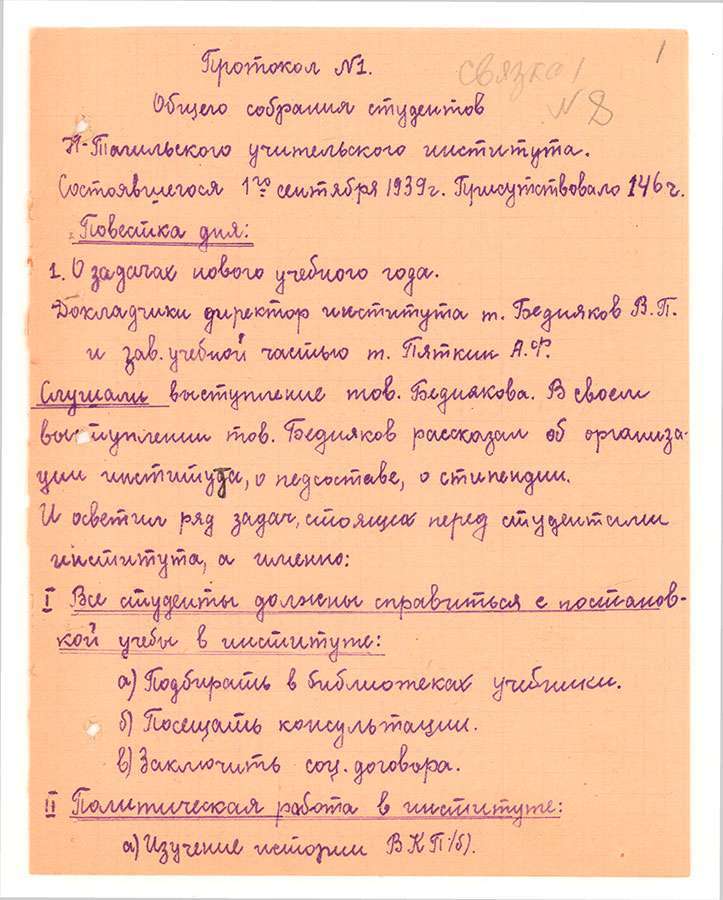 1
связка 1
N 8
Протокол N1.
Общего собрания студентов
Н-Тагильского учительского института.
Состоявшегося 1го сентября 1939 г. Присутствовало 146 ч.
Повестка дня:
1. О задачах нового учебного года.
Докладчики директор института т. Бедняков В.П.
и зав. учебной частью т. Пяткин А.Ф.
Слушали выступление тов. Беднякова. В своем
выступлении тов. Бедняков рассказал об организа-
ции института, о педсоставе, о стипендии.
И осветил ряд задач, стоящих перед студентами
института, а именно:
I Все студенты должны справиться с постанов-
кой учебы в институте:
а) Подбирать в библиотеках учебники.
б) Посещать консультации.
в) Заключить соц. договора.
II Политическая работа в институте:
а) Изучение истории ВКП/б).